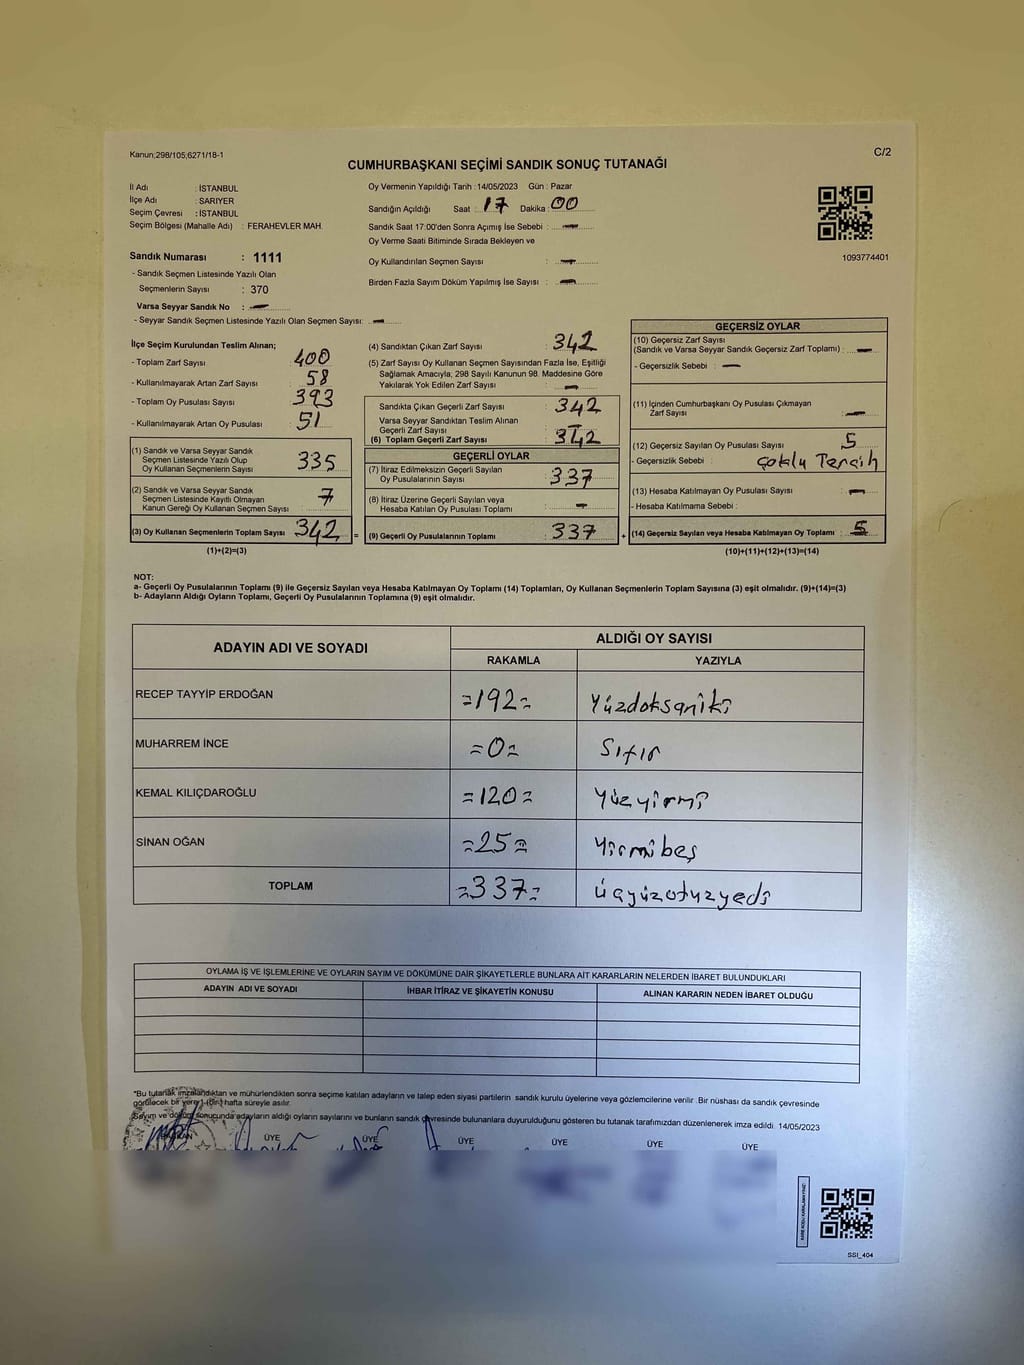 Kanun;298/105;6271/18-1
C/2
CUMHURBAŞKANI SEÇİMİ SANDIK SONUÇ TUTANAĞI
İl Adı : İSTANBUL
İlçe Adı : SARIYER
Seçim Çevresi : İSTANBUL
Seçim Bölgesi (Mahalle Adı) : FERAHEVLER MAH.
Sandık Numarası : 1111
- Sandık Seçmen Listesinde Yazılı Olan
Seçmenlerin Sayısı : 370
Varsa Seyyar Sandık No : —
- Seyyar Sandık Seçmen Listesinde Yazılı Olan Seçmen Sayısı: —
Oy Vermenin Yapıldığı Tarih : 14/05/2023 Gün : Pazar
Sandığın Açıldığı Saat : 17 Dakika : 00
Sandık Saat 17:00'den Sonra Açımış İse Sebebi : —
Oy Verme Saati Bitiminde Sırada Bekleyen ve
Oy Kullandırılan Seçmen Sayısı : —
Birden Fazla Sayım Döküm Yapılmış İse Sayısı : —
1093774401
İlçe Seçim Kurulundan Teslim Alınan;
- Toplam Zarf Sayısı : 400
- Kullanılmayarak Artan Zarf Sayısı : 58
- Toplam Oy Pusulası Sayısı : 393
- Kullanılmayarak Artan Oy Pusulası : 51
(1) Sandık ve Varsa Seyyar Sandık
Seçmen Listesinde Yazılı Olup
Oy Kullanan Seçmenlerin Sayısı : 335
(2) Sandık ve Varsa Seyyar Sandık
Seçmen Listesinde Kayıtlı Olmayan
Kanun Gereği Oy Kullanan Seçmen Sayısı : 7
(3) Oy Kullanan Seçmenlerin Toplam Sayısı : 342 =
(1)+(2)=(3)
(4) Sandıktan Çıkan Zarf Sayısı : 342
(5) Zarf Sayısı Oy Kullanan Seçmen Sayısından Fazla İse, Eşitliği
Sağlamak Amacıyla; 298 Sayılı Kanunun 98. Maddesine Göre
Yakılarak Yok Edilen Zarf Sayısı : —
Sandıkta Çıkan Geçerli Zarf Sayısı : 342
Varsa Seyyar Sandıktan Teslim Alınan
Geçerli Zarf Sayısı : —
(6) Toplam Geçerli Zarf Sayısı : 342
GEÇERLİ OYLAR
(7) İtiraz Edilmeksizin Geçerli Sayılan
Oy Pusulalarının Sayısı : 337
(8) İtiraz Üzerine Geçerli Sayılan veya
Hesaba Katılan Oy Pusulası Toplamı : —
(9) Geçerli Oy Pusulalarının Toplamı : 337 +
GEÇERSİZ OYLAR
(10) Geçersiz Zarf Sayısı
(Sandık ve Varsa Seyyar Sandık Geçersiz Zarf Toplamı) : —
- Geçersizlik Sebebi : —
(11) İçinden Cumhurbaşkanı Oy Pusulası Çıkmayan
Zarf Sayısı : —
(12) Geçersiz Sayılan Oy Pusulası Sayısı : 5
- Geçersizlik Sebebi : Çoklu Tercih
(13) Hesaba Katılmayan Oy Pusulası Sayısı : —
- Hesaba Katılmama Sebebi :
(14) Geçersiz Sayılan veya Hesaba Katılmayan Oy Toplamı : 5
(10)+(11)+(12)+(13)=(14)
NOT:
a- Geçerli Oy Pusulalarının Toplamı (9) ile Geçersiz Sayılan veya Hesaba Katılmayan Oy Toplamı (14) Toplamları, Oy Kullanan Seçmenlerin Toplam Sayısına (3) eşit olmalıdır. (9)+(14)=(3)
b- Adayların Aldığı Oyların Toplamı, Geçerli Oy Pusulalarının Toplamına (9) eşit olmalıdır.
ADAYIN ADI VE SOYADI ALDIĞI OY SAYISI
RAKAMLA YAZIYLA
RECEP TAYYİP ERDOĞAN =192= Yüzdoksaniki
MUHARREM İNCE =0= Sıfır
KEMAL KILIÇDAROĞLU =120= Yüzyirmi
SİNAN OĞAN =25= Yirmibeş
TOPLAM =337= üçyüzotuzyedi
OYLAMA İŞ VE İŞLEMLERİNE VE OYLARIN SAYIM VE DÖKÜMÜNE DAİR ŞİKAYETLERLE BUNLARA AİT KARARLARIN NELERDEN İBARET BULUNDUKLARI
ADAYIN ADI VE SOYADI İHBAR İTİRAZ VE ŞİKAYETİN KONUSU ALINAN KARARIN NEDEN İBARET OLDUĞU
"Bu tutanak imzalandıktan ve mühürlendikten sonra seçime katılan adayların ve talep eden siyasi partilerin sandık kurulu üyelerine veya gözlemcilerine verilir .Bir nüshası da sandık çevresinde
görülecek bir yere 1 (bir) hafta süreyle asılır.
Sayım ve döküm sonucunda adayların aldığı oyların sayılarını ve bunların sandık çevresinde bulunanlara duyurulduğunu gösteren bu tutanak tarafımızdan düzenlenerek imza edildi. 14/05/2023
BAŞKAN ÜYE ÜYE ÜYE ÜYE ÜYE ÜYE
SSI_404